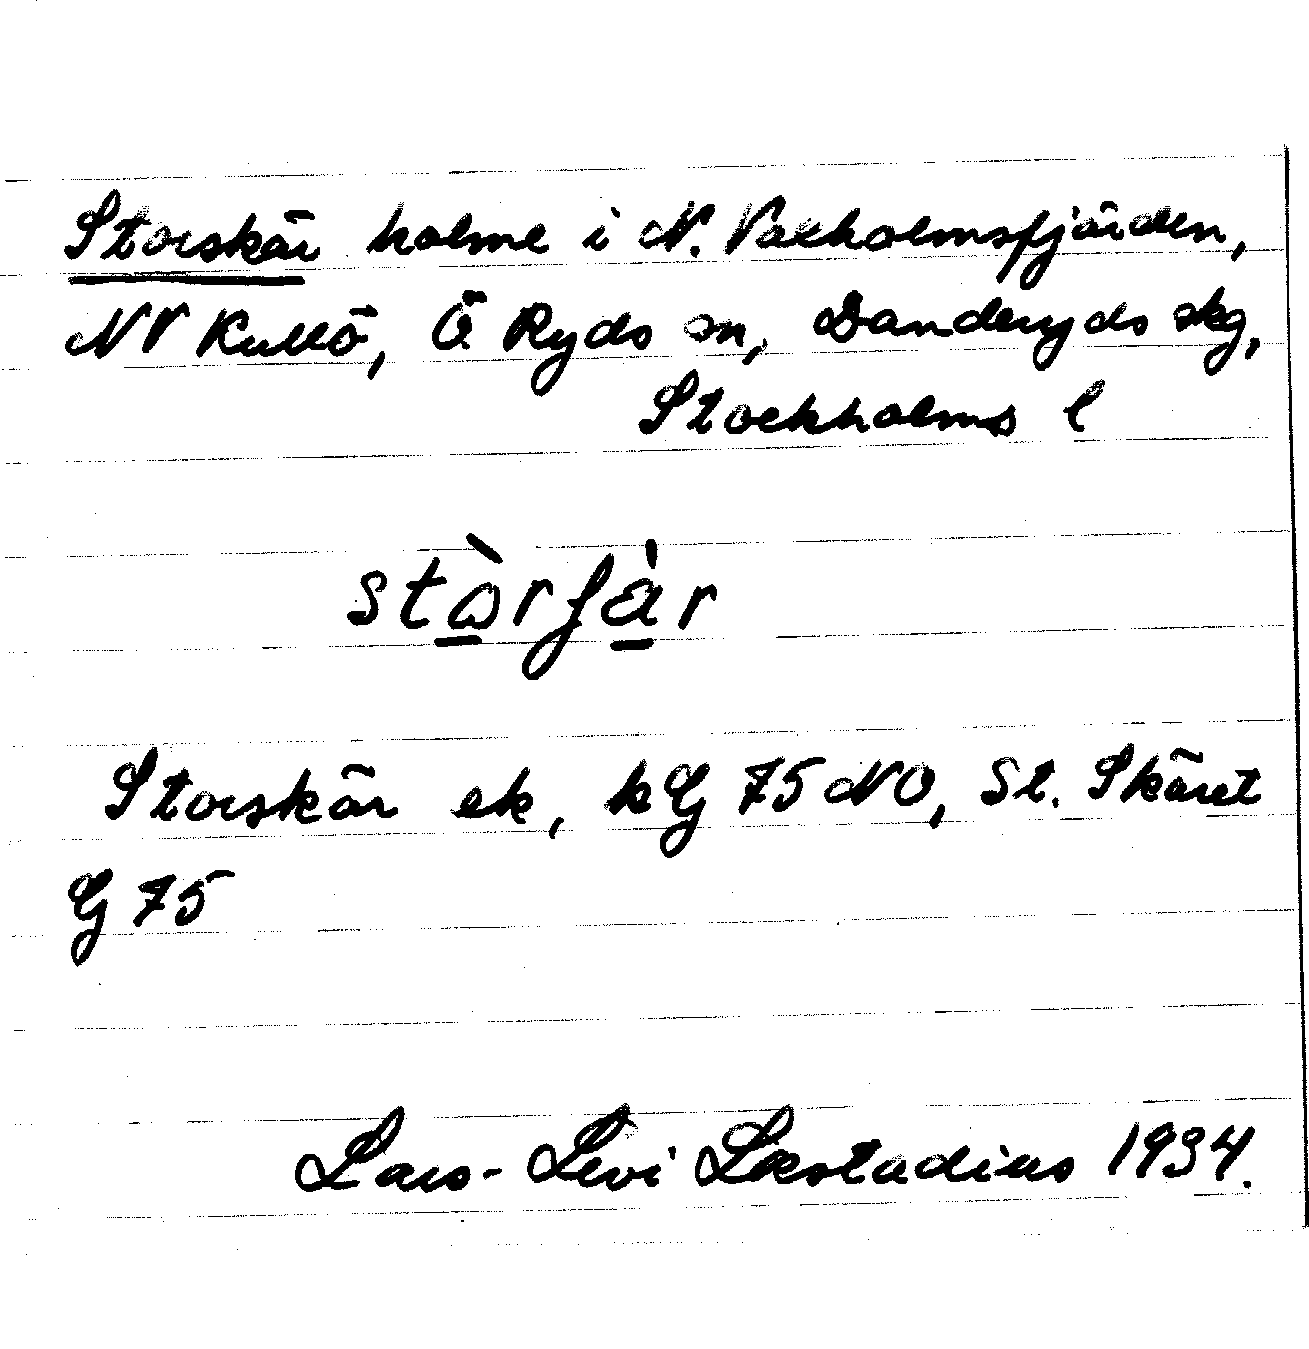 Storskär holme i N. Vaxholmsfjärden,
NV Kullö, Ö Ryds sn, Danderyds skg,
Stockholms l
stɷ̀rʃa̍r
Storskär ek, kG 75 NO, St. Skäret
G 75
Lars-Levi Læstadius 1934.